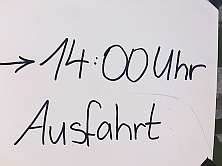 → 14:00 Uhr
Ausfahrt